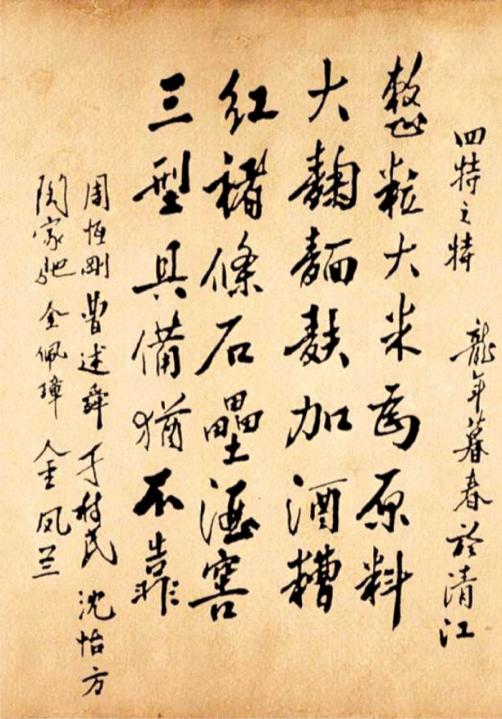 四特之特 龍年暮春於清江
整粒大米為原料
大麯麵麩加酒糟
紅褚條石壘酒窖
三型具備猶不靠
周恆剛 曹述舜 于树民 沈怡方
陶家驰 金佩璋 金凤兰